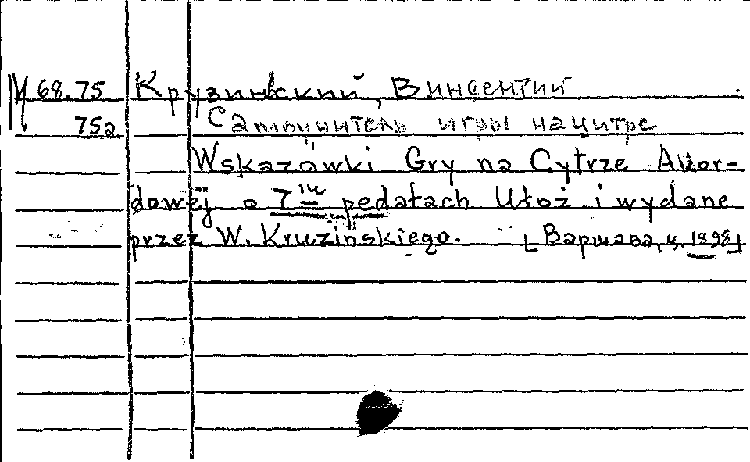 М 68.75 Крузинский, Винсентий
75a Самоучитель игры на цитре
Wskazówki Gry na Cytrze Akor-
dowéj o 7ᵐⁱᵘ pedałach Ułoż. i wydane
przez W. Kruzińskiego. [Варшава, ц. 1898]